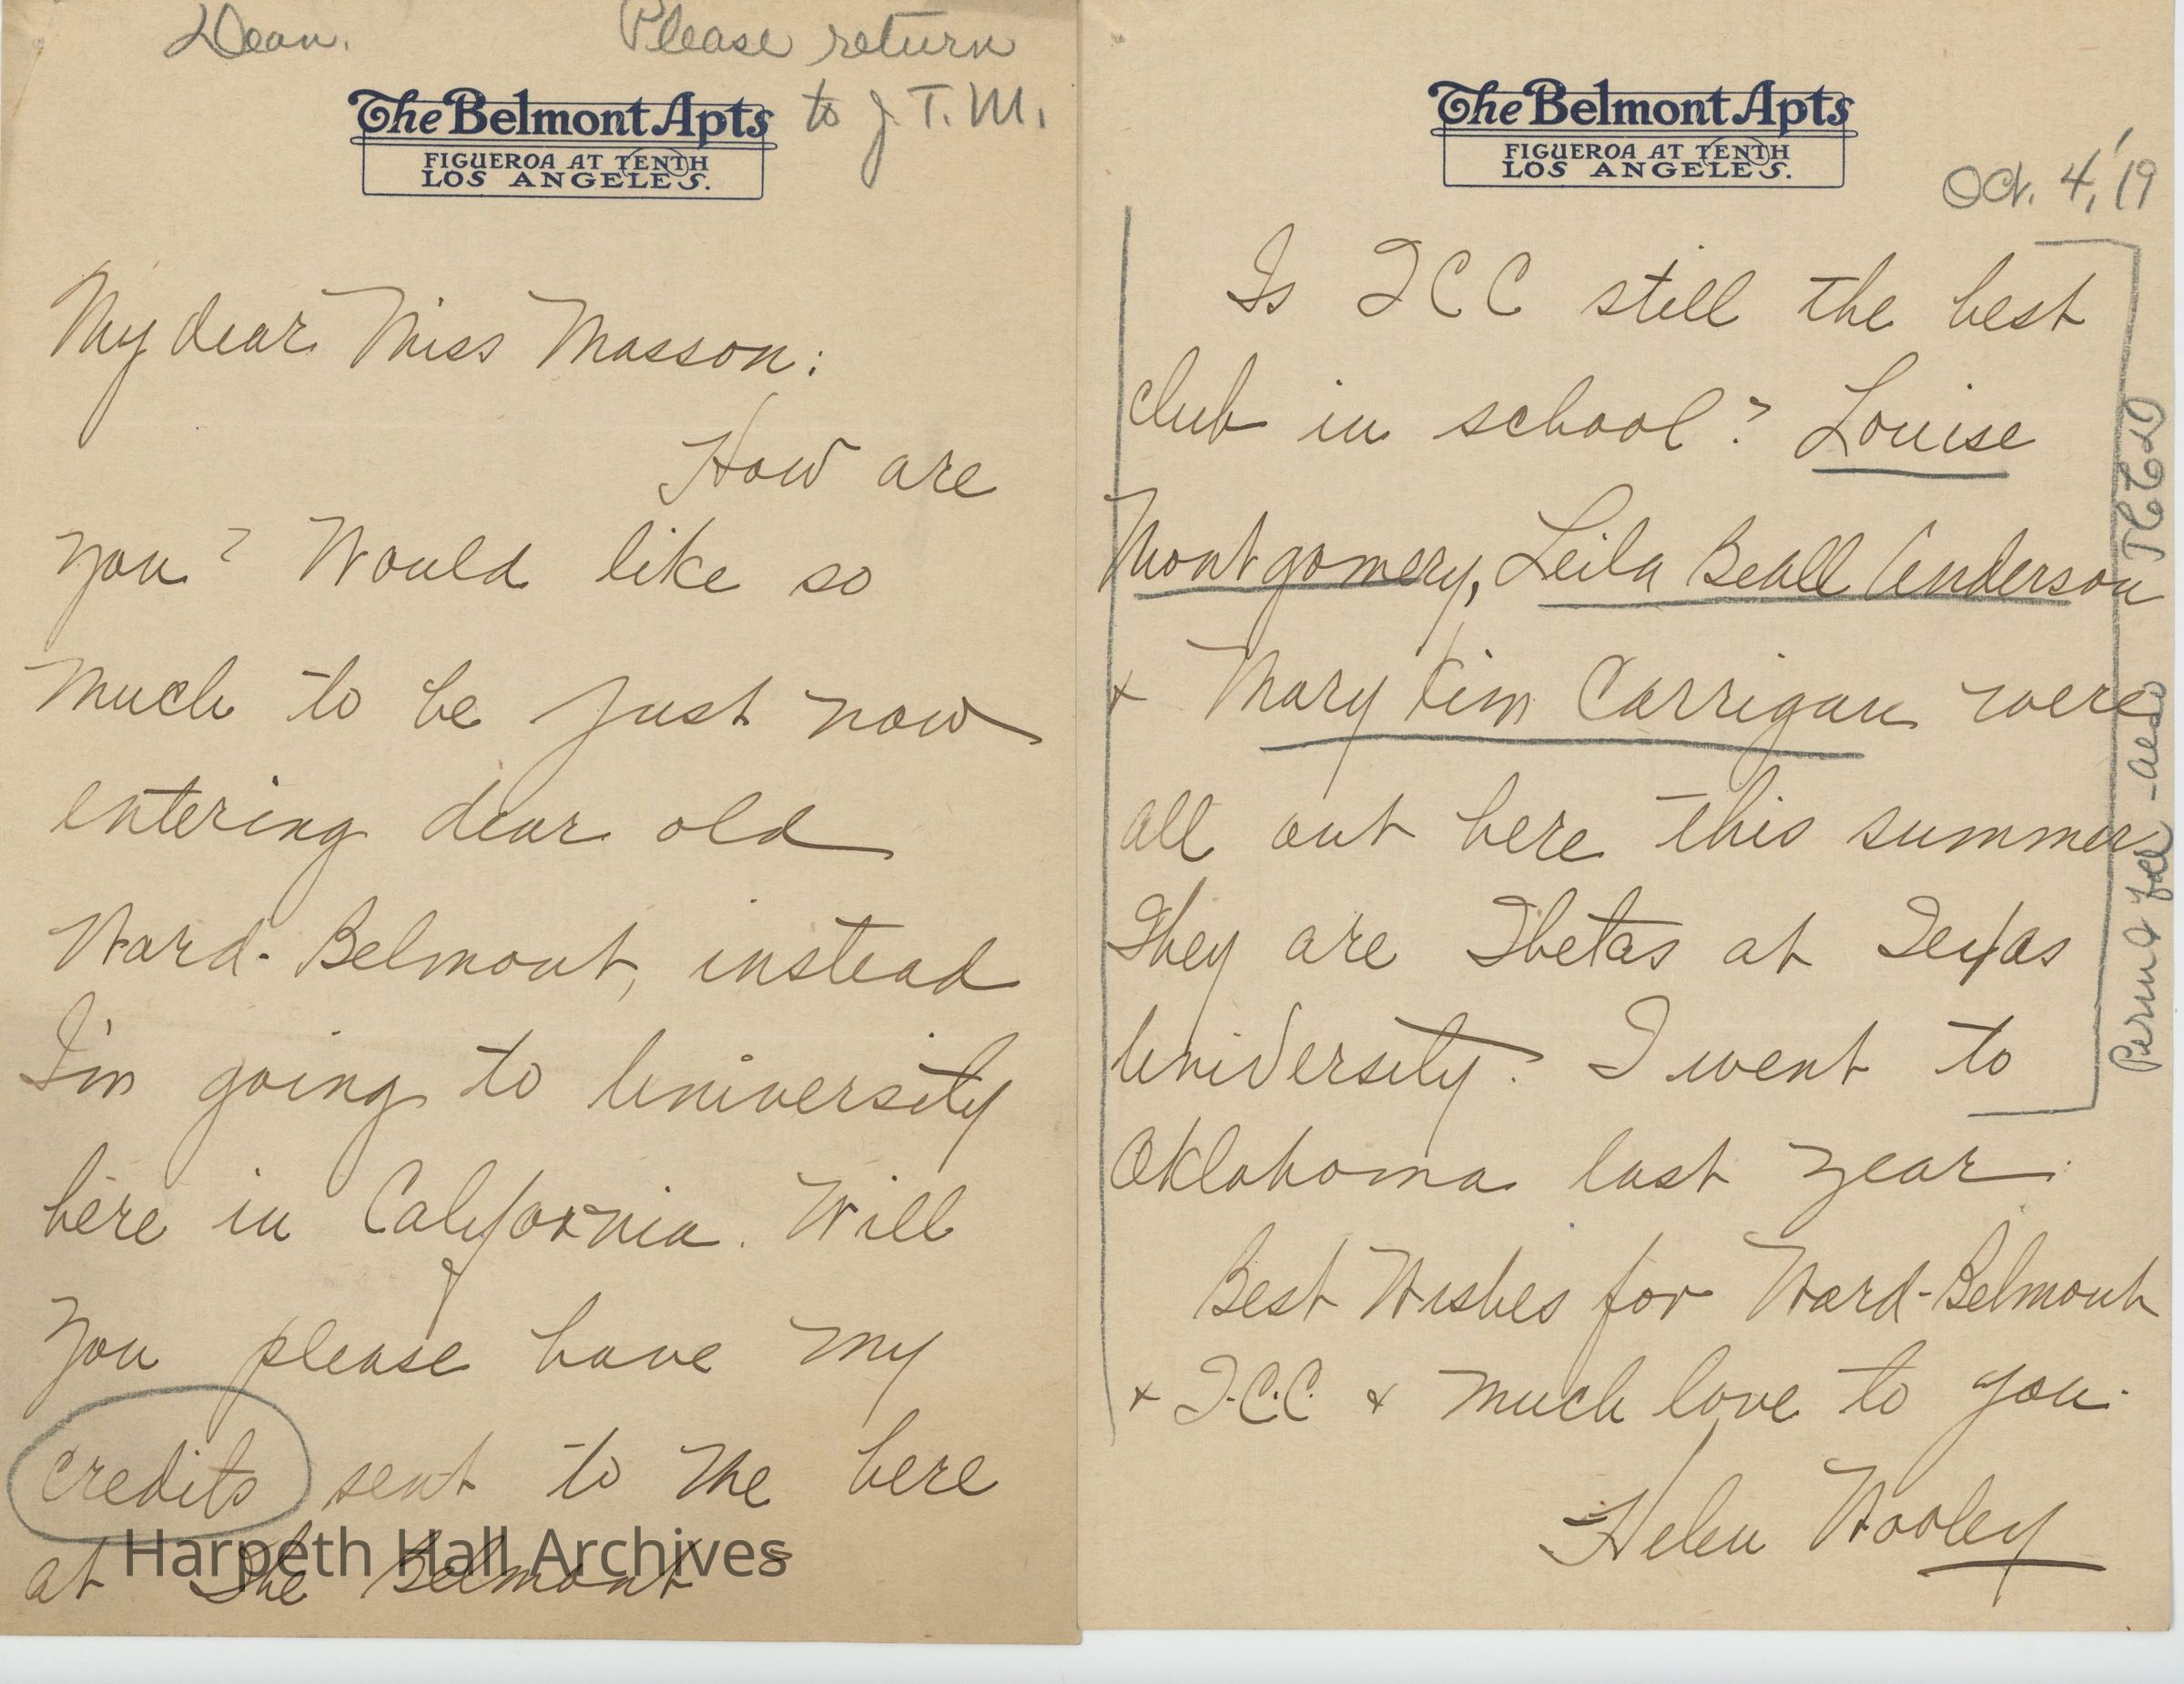 Dean. Please return
to J. T. M.
The Belmont Apts
FIGUEROA AT TENTH
LOS ANGELES.
My dear Miss Masson:
How are
you? Would like so
much to be just now
entering dear old
Ward-Belmont, instead
I'm going to University
here in California. Will
you please have my
credits sent to me here
at The Belmont
Harpeth Hall Archives
The Belmont Apts
FIGUEROA AT TENTH
LOS ANGELES.
Oct. 4, '19
Is TCC still the best
club in school? Louise
Montgomery, Leila Beall Anderson
+ Mary Kim Carrigan were
all out here this summer
They are Thetas at Texas
University. I went to
Oklahoma last year.
Best Wishes for Ward-Belmont
+ T.C.C. & much love to you.
Helen Wooley